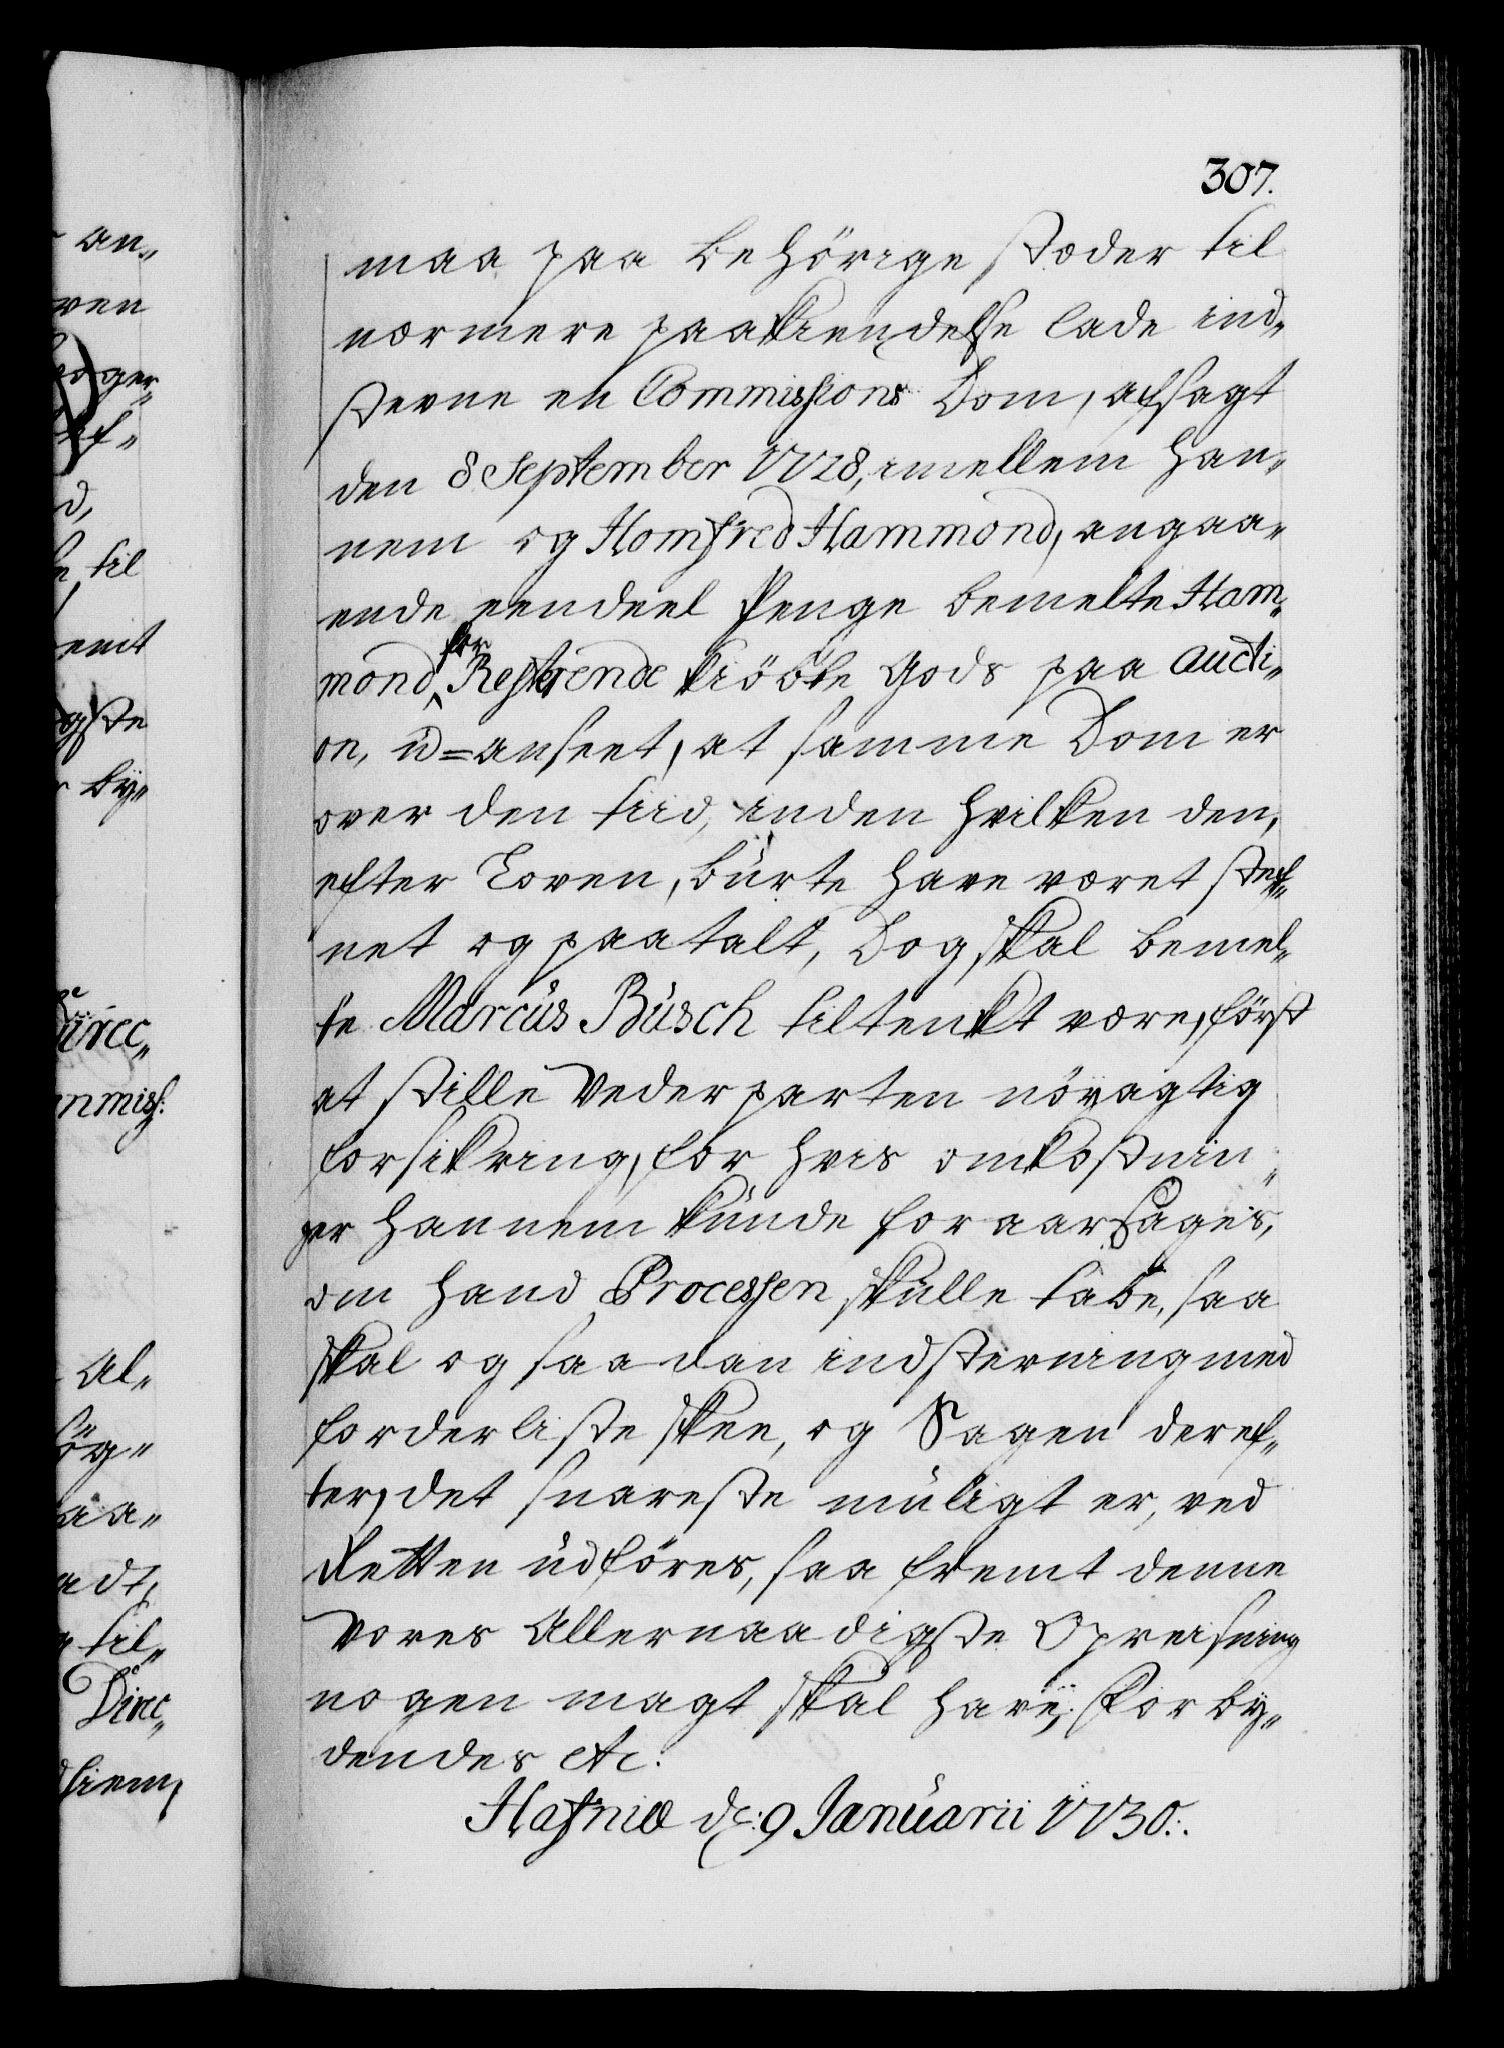 307.
maa paa behörige stæder til
nærmere paakiendelse lade ind„
stevne en Commissions Dom, afsagt
den 8 September 1728, imellem han„
nem og Homfred Hammond, angaa„
ende een deel Penge bemelte Ham„
mond for Resterende kiöbte Gods paa Aucti„
on, u=anseet, at samme Dom er
over den tiid, inden hvilken den,
efter Loven, burte have været stef„
net og paatalt, Dog skal bemel„
te Marcus Busch tiltenkt være, först
at stille Vederparten nöyagtig
forsikring, for hvis omkostnin„
ger hannem kunde foraarsages,
om hand Processen skulle tabe, saa
skal og saadan indstevning med
forderligste skee, og Sagen deref„
ter, det snareste muligt er, ved
Retten udföres, saa fremt denne
Vores Allernaadigste Opreisning
nogen magt skal have; Forby„
dendes etc.
Hafniæ d: 9 Januarii 1730.
an„
ven
til
emt
gste
by„
Direc„
Al„
til„
Direc„